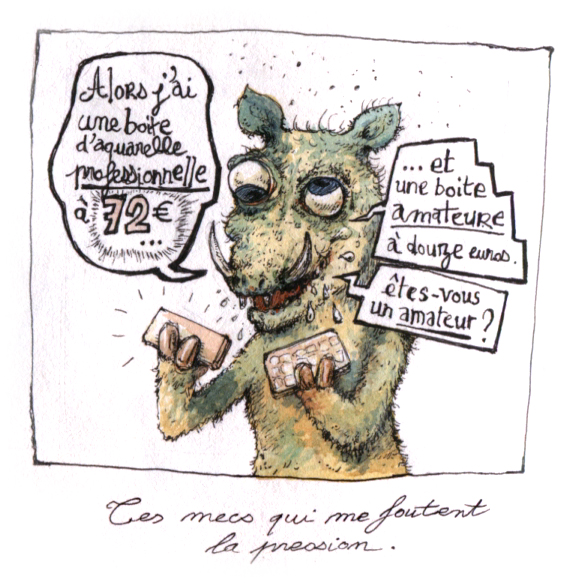 Alors j'ai
une boite
d'aquarelle
professionnelle
à 72€
...
... et
une boite
amateure
à douze euros.
êtes-vous
un amateur ?
Ces mecs qui me foutent
la pression.